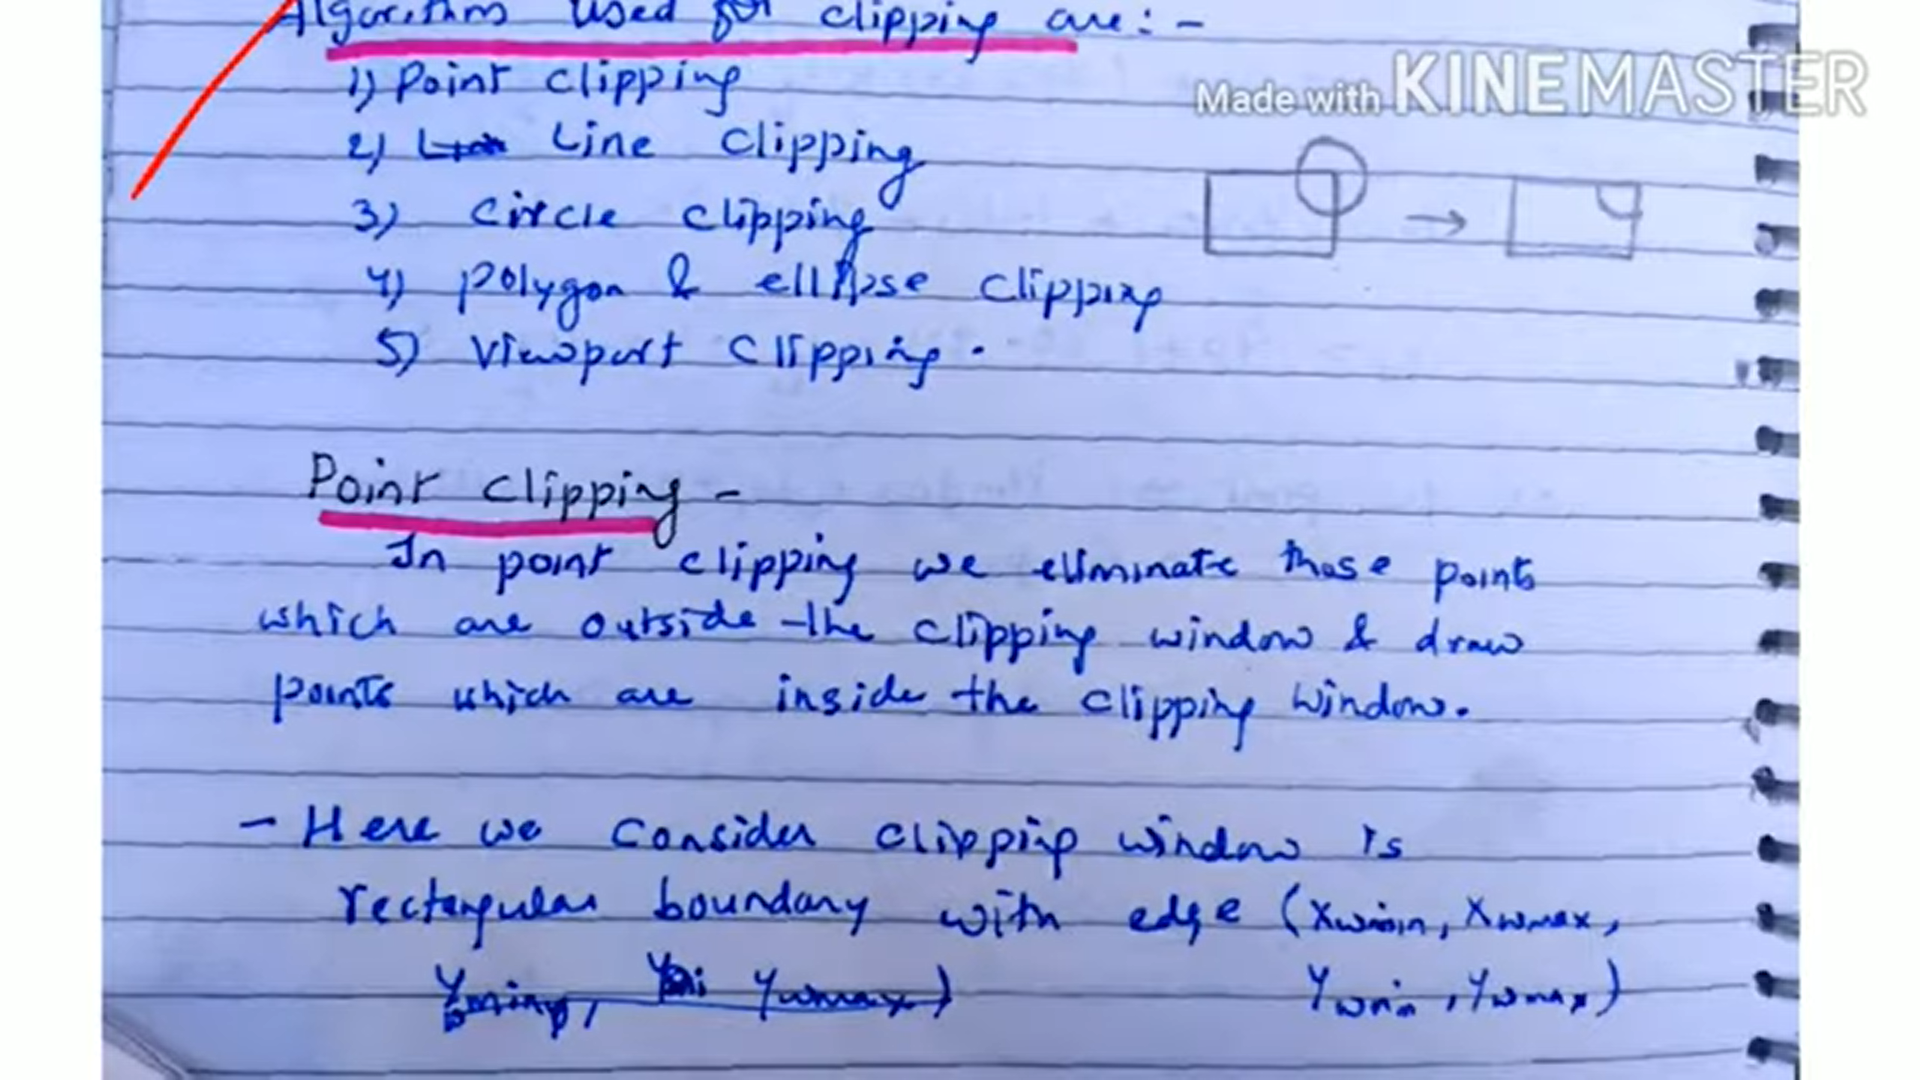 Algorithms used for clipping are:-
Made with KINEMASTER
1) Point clipping
2) Line clipping
3) Circle clipping
4) polygon & ellipse clipping
5) Viewport clipping.
Point clipping -
In point clipping we eliminate those points
which are outside the clipping window & draw
points which are inside the clipping window.
- Here we consider clipping window is
rectangular boundary with edge (Xwmin, Xwmax,
Ywmin, Ywmax)